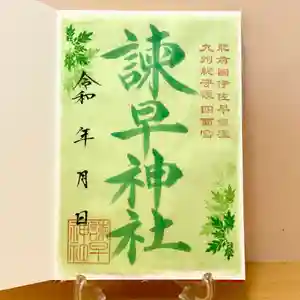 肥前國伊佐早鎮座
九州総守護四面宮
諫早神社
令和 年 月 日
諫早
神社